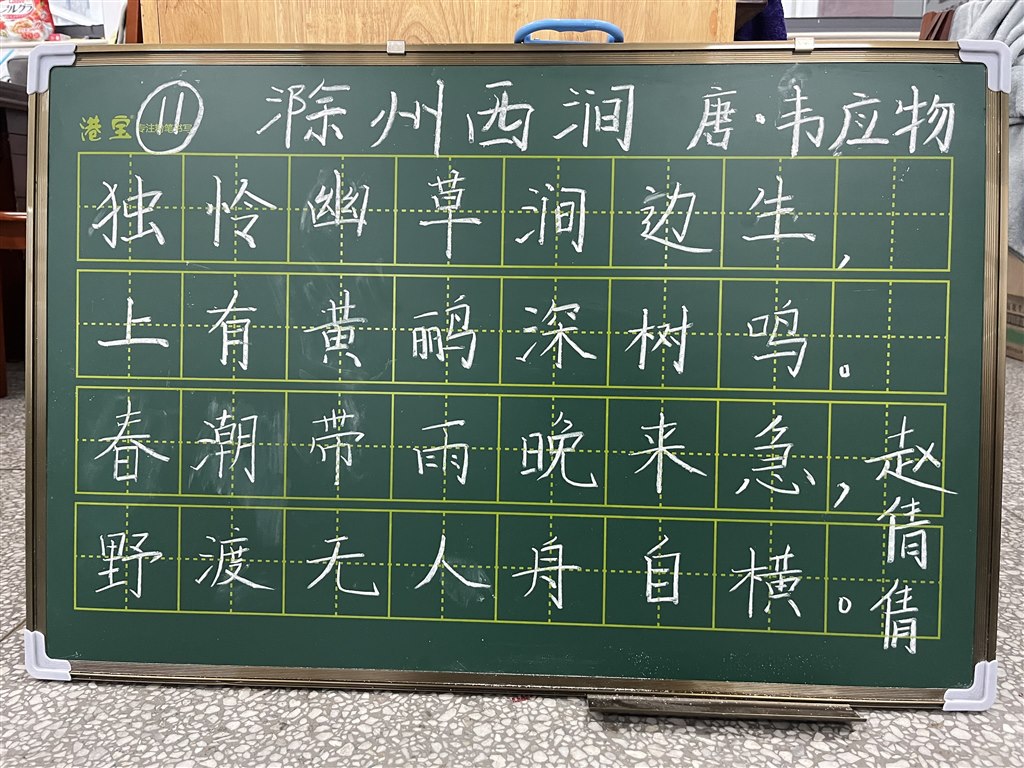 港宝 专注粉笔书写
⑪ 滁州西涧 唐·韦应物
独怜幽草涧边生，
上有黄鹂深树鸣。
春潮带雨晚来急，
野渡无人舟自横。
赵倩倩